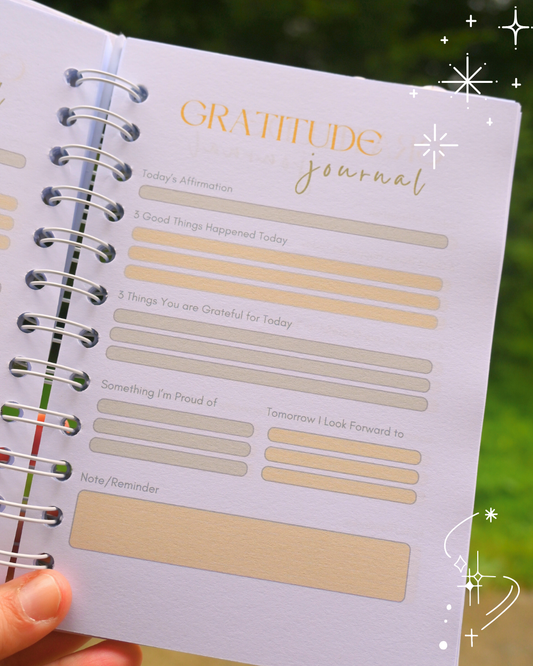 GRATITUDE
journal
Today's Affirmation
3 Good Things Happened Today
3 Things You are Grateful for Today
Something I'm Proud of
Tomorrow I Look Forward to
Note/Reminder